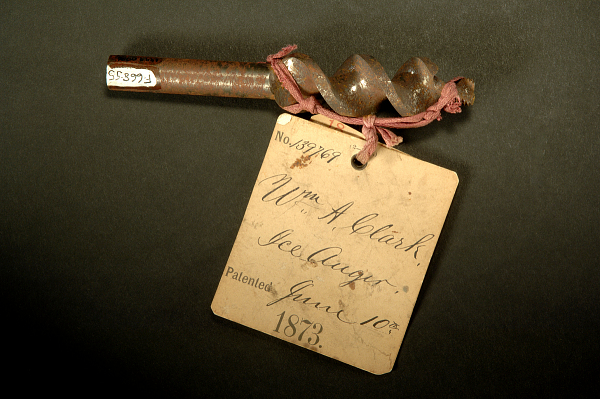 F66855
No. 139769
Wm A. Clark.
Ice Auger.
Patented June 10th
1873.